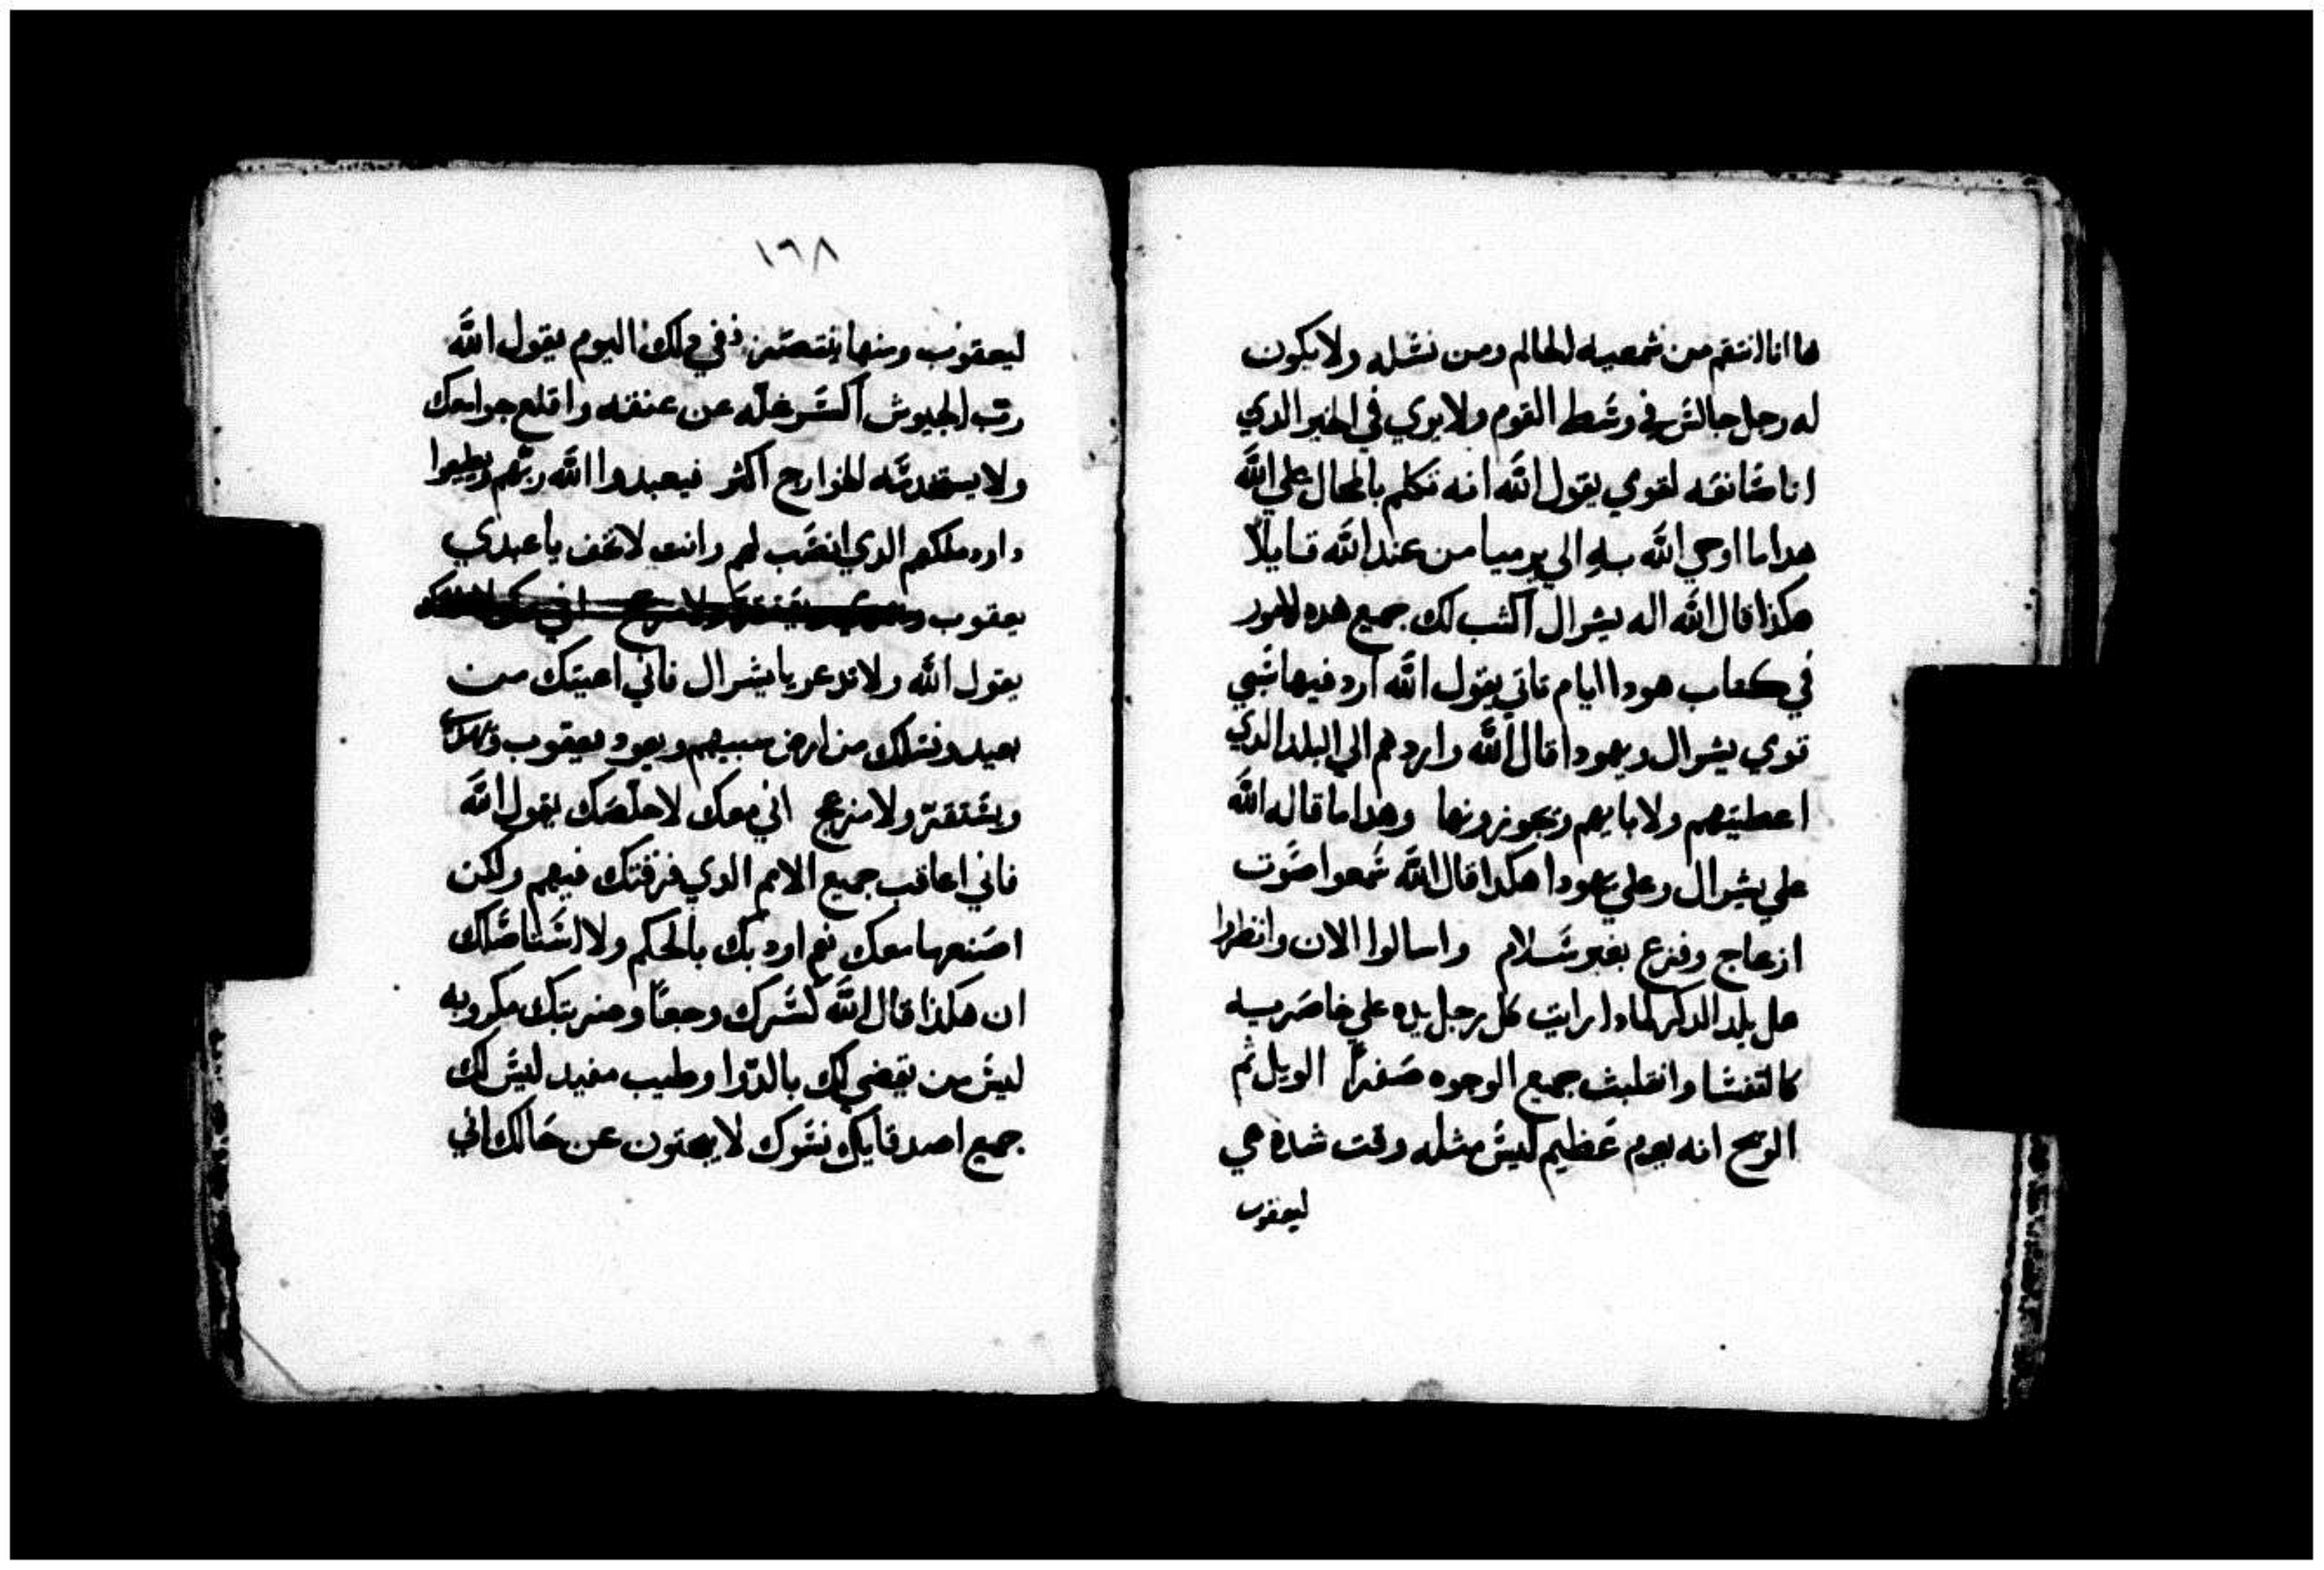 ها انا انتقم من شمعيه الحالم ومن نسله ولا يكون
له رجل جالس في وسط القوم ولا يري في الخير الدي
انا صانعه لقومي يقول الله انه تكلم بالمحال علي الله
هدا ما اوحي الله به الي يرميا من عند الله قايلا
هكذا قال الله اله يشرال اكتب لك جميع هده الامور
في كتاب هودا ايام تاتي يقول الله ارد فيها سبي
قومي يشرال ويهودا قال الله واردهم الي البلد الدي
اعطيتهم ولابايهم ويحوزونها وهدا ما قاله الله
علي يشرال وعلي يهودا هكدا قال الله سمعوا صوت
ازعاج وفزع بغير سلام واسالوا الان وانظروا
هل يلد الدكر لمادا رايت كل رجل يده علي خاصرتيه
كالنفسا وانقلبت جميع الوجوه صفرا الويل ثم
الويح انه يوم عظيم ليس مثله وقت شدة هي
ليعقوب
١٦٨
ليعقوب ومنها في دلك اليوم يقول الله
رب الجيوش اكسر غله عن عنقه واقلع جوامعك
ولا يستخدمنه الخوارج اكثر فيعبدوا الله ربهم ويطيعوا
داود ملكهم الدي انصب لهم وانت لا تخف يا عبدي
يعقوب
يقول الله ولا تدعر يا يشرال فاني اعيتك من
بعيد ونسلك من ارض سبيهم ويعود يعقوب
ويستقر ولا مزعج اني معك لاخلصك يقول الله
فاني اعاقب جميع الامم الدي فرقتك فيهم ولكن
اصنعها معك نعم اودبك بالحكم ولا استاصلك
ان هكذا قال الله كسرك وجعا وضربتك مكروبه
ليس من يقضي لك بالدوا وطبيب مفيد ليس لك
جميع اصدقايك نسوك لا يبحتون عن حالك اني